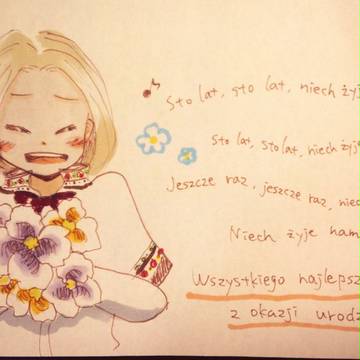 Sto lat, sto lat, niech żyje
Sto lat, sto lat, niech żyje
Jeszcze raz, jeszcze raz, niec
Niech żyje nam
Wszystkiego najleps
z okazji urodz